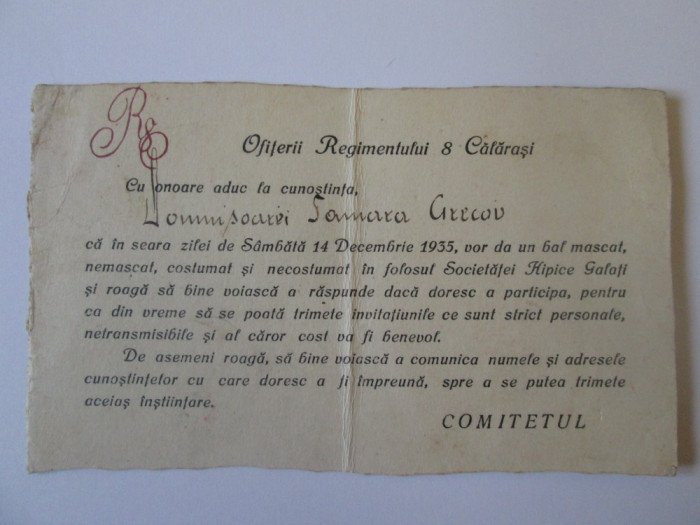 R8
Ofiţerii Regimentului 8 Călăraşi
Cu onoare aduc la cunoştinţa,
Domnişoarei Tamara Grecov
că în seara zilei de Sâmbătă 14 Decembrie 1935, vor da un bal mascat,
nemascat, costumat şi necostumat în folosul Societăţei Hipice Galaţi
şi roagă să bine voiască a răspunde dacă doresc a participa, pentru
ca din vreme să se poată trimete invitaţiunile ce sunt strict personale,
netransmisibile şi al căror cost va fi benevol.
De asemeni roagă, să bine voiască a comunica numele şi adresele
cunoştinţelor cu care doresc a fi împreună, spre a se putea trimete
aceiaş înştiinţare.
COMITETUL